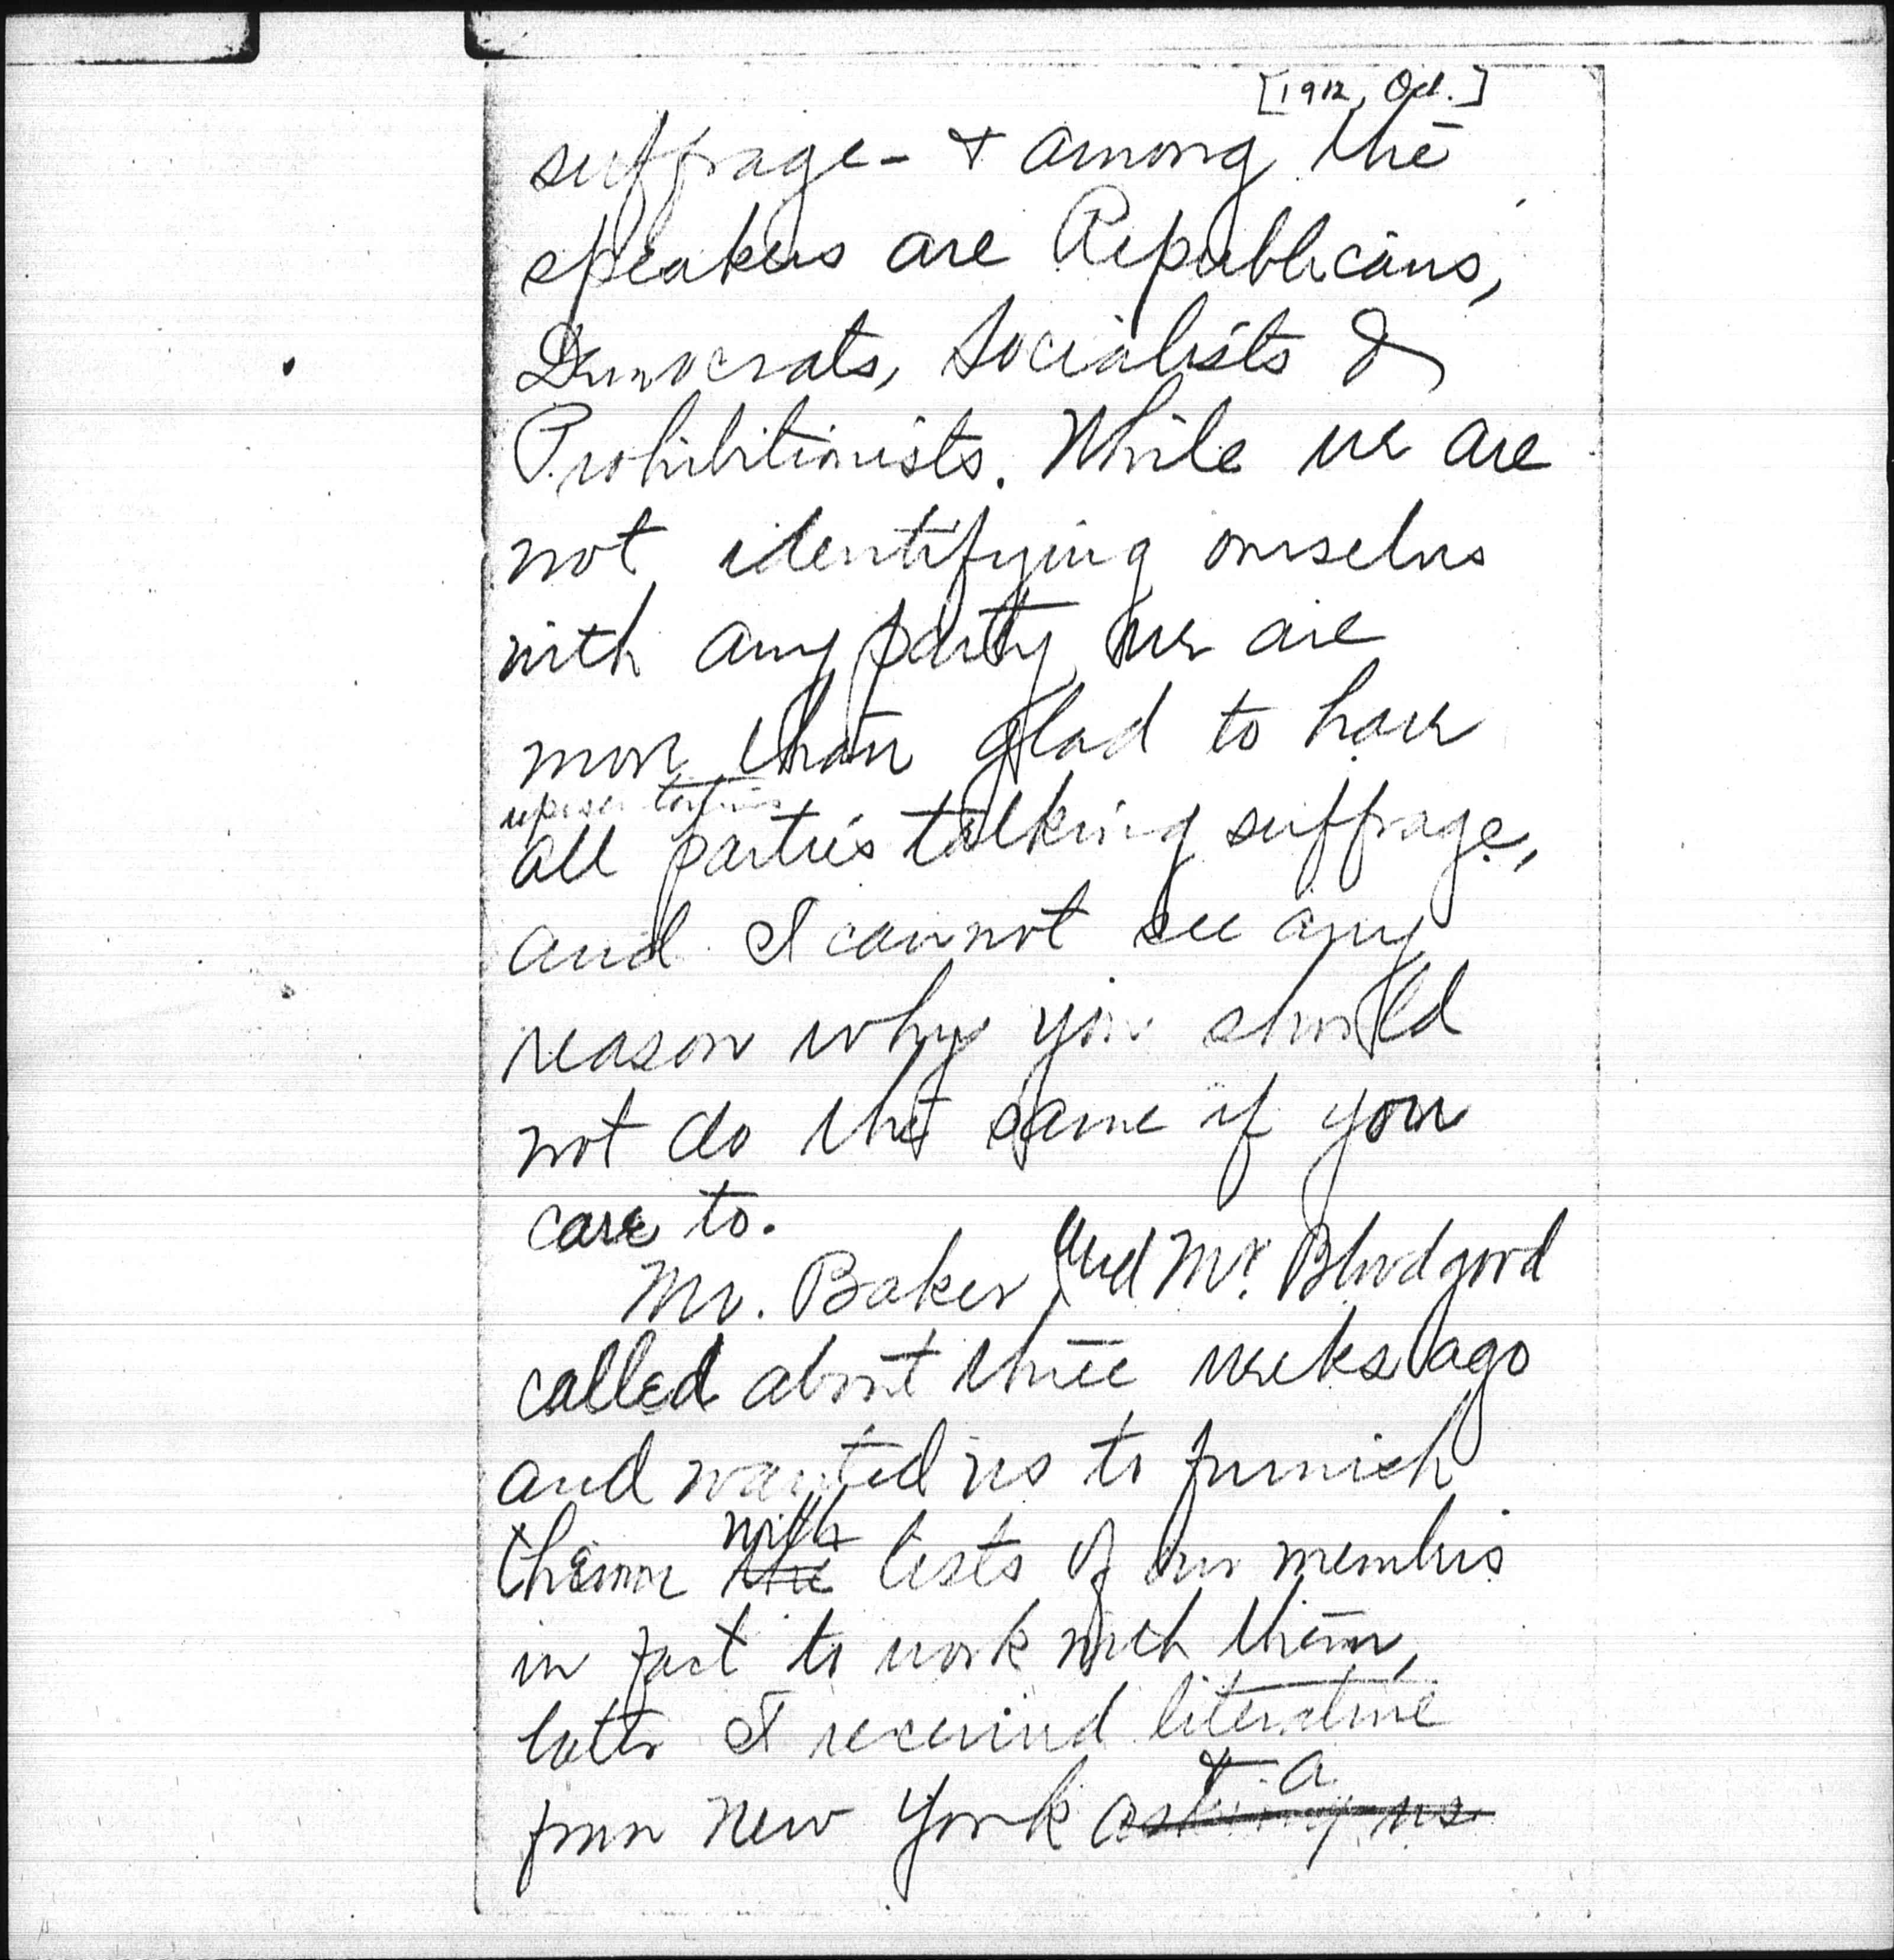 [1912, Oct.]
suffrage - & among the
speakers are Republicans,
Democrats, Socialists &
Prohibitionists. While we are
not identifying ourselves
with any party we are
more than glad to have
representatives
all parties talking suffrage,
and I cannot see any
reason why you should
not do the same if you
care to.
Mr. Baker and Mr. Bloodgood
called about three weeks ago
and wanted us to furnish
with
them the lists of our members
in fact to work with them,
later I received literature
& a
from New York asking us